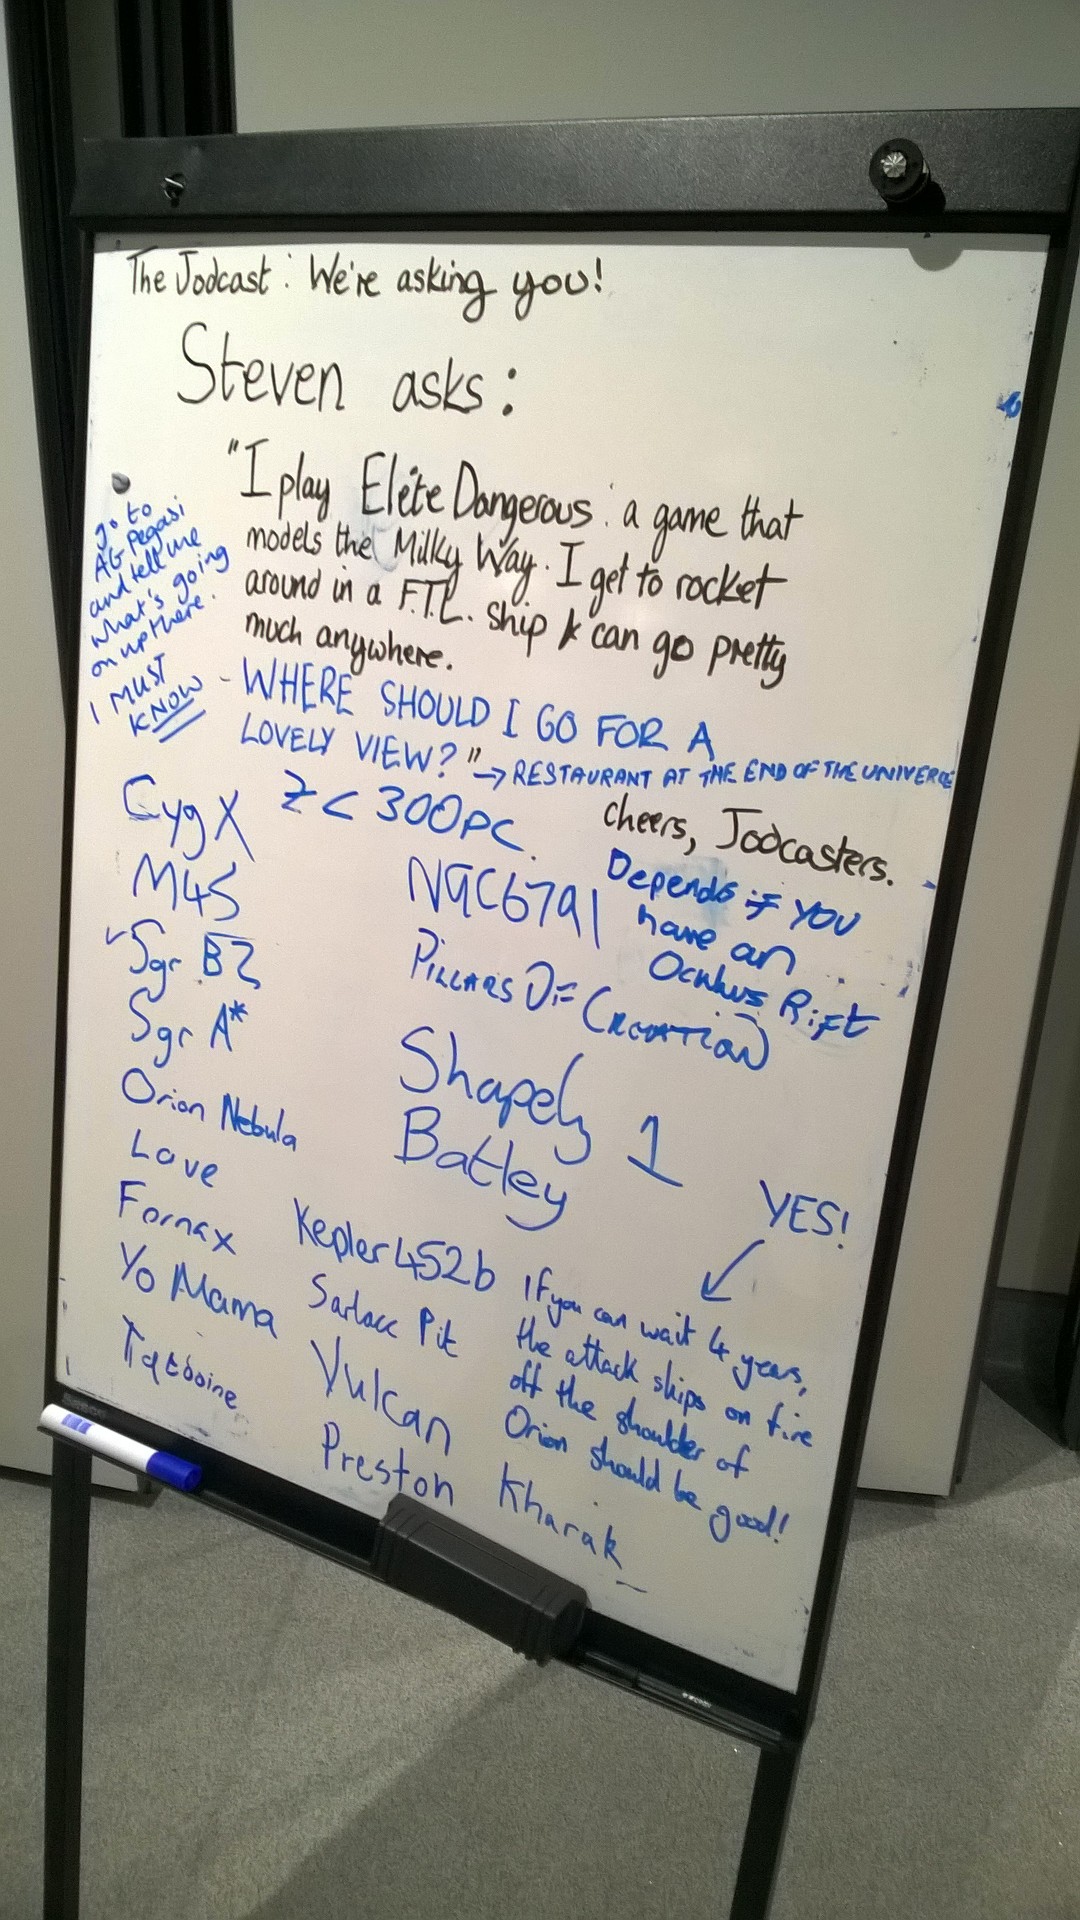 The Jodcast: We're asking you!
Steven asks:
"I play Elite Dangerous: a game that
models the Milky Way. I get to rocket
around in a F.T.L. ship & can go pretty
much anywhere.
- WHERE SHOULD I GO FOR A
LOVELY VIEW?"
→ RESTAURANT AT THE END OF THE UNIVERSE
cheers, Jodcasters.
go to
AG Pegasi
and tell me
what's going
on up there.
I MUST
KNOW
Z < 300pc.
Cyg X
M45
Sgr B2
Sgr A*
Orion Nebula
Love
Fornax
Yo Mama
Tatooine
NGC6791
PILLARS OF CREATION
Shapely 1
Batley
Depends if you
have an
Oculus Rift
Kepler 452b
Sarlacc Pit
Vulcan
Preston
YES!
If you can wait 4 years,
the attack ships on fire
off the shoulder of
Orion should be good!
Kharak